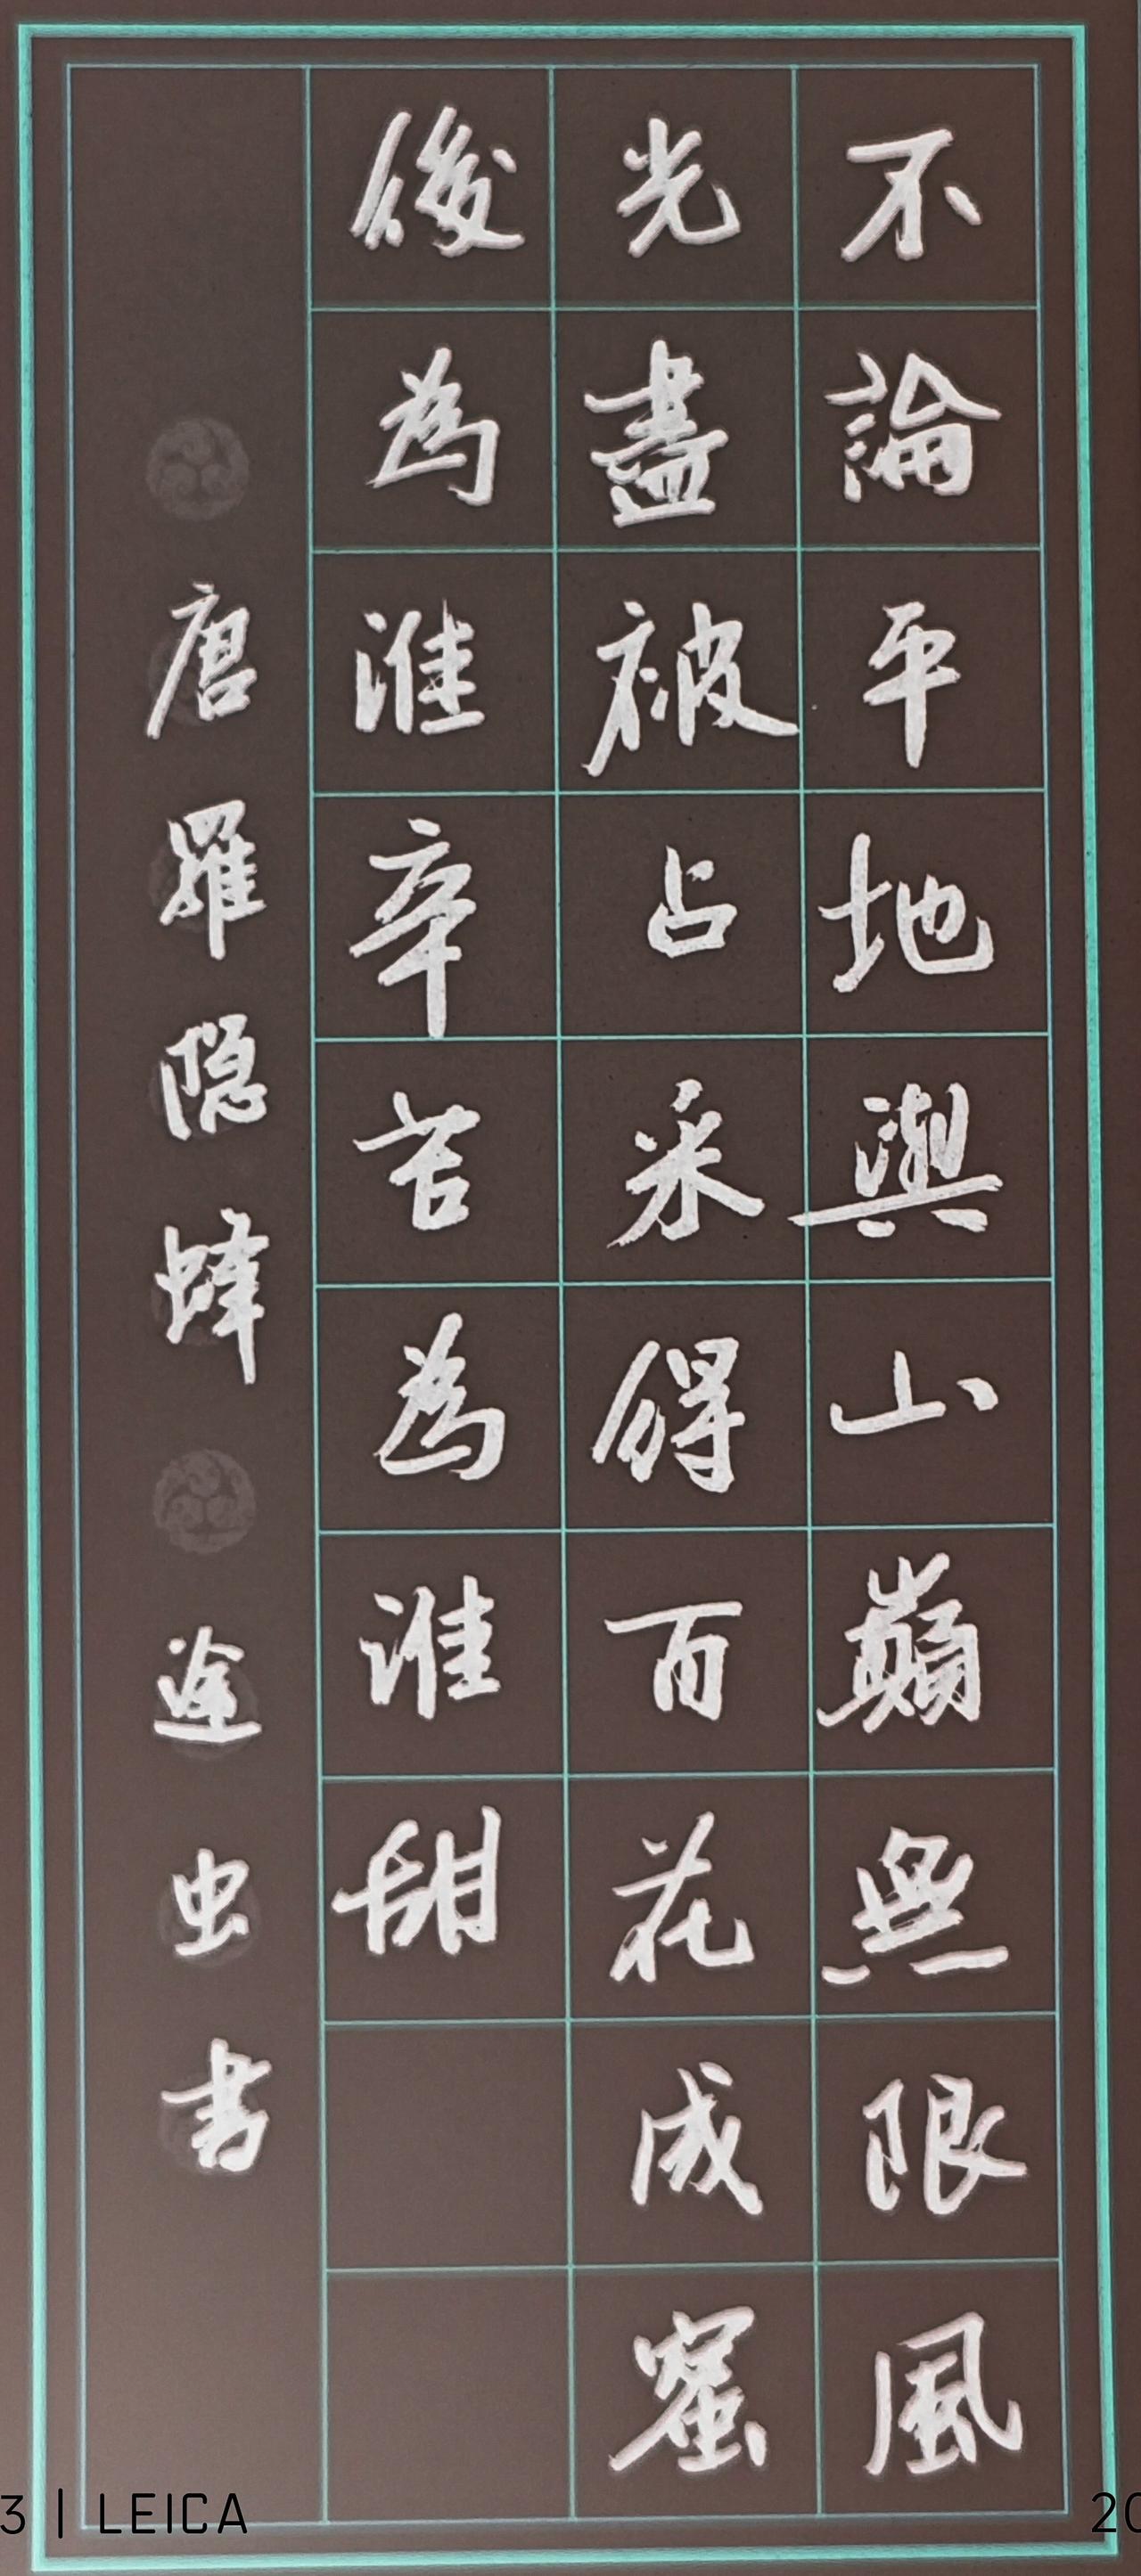 不論平地與山巔無限風
光盡被占采得百花成蜜
後為誰辛苦為誰甜
唐羅隐蜂 途虫書
3 | LEICA
20